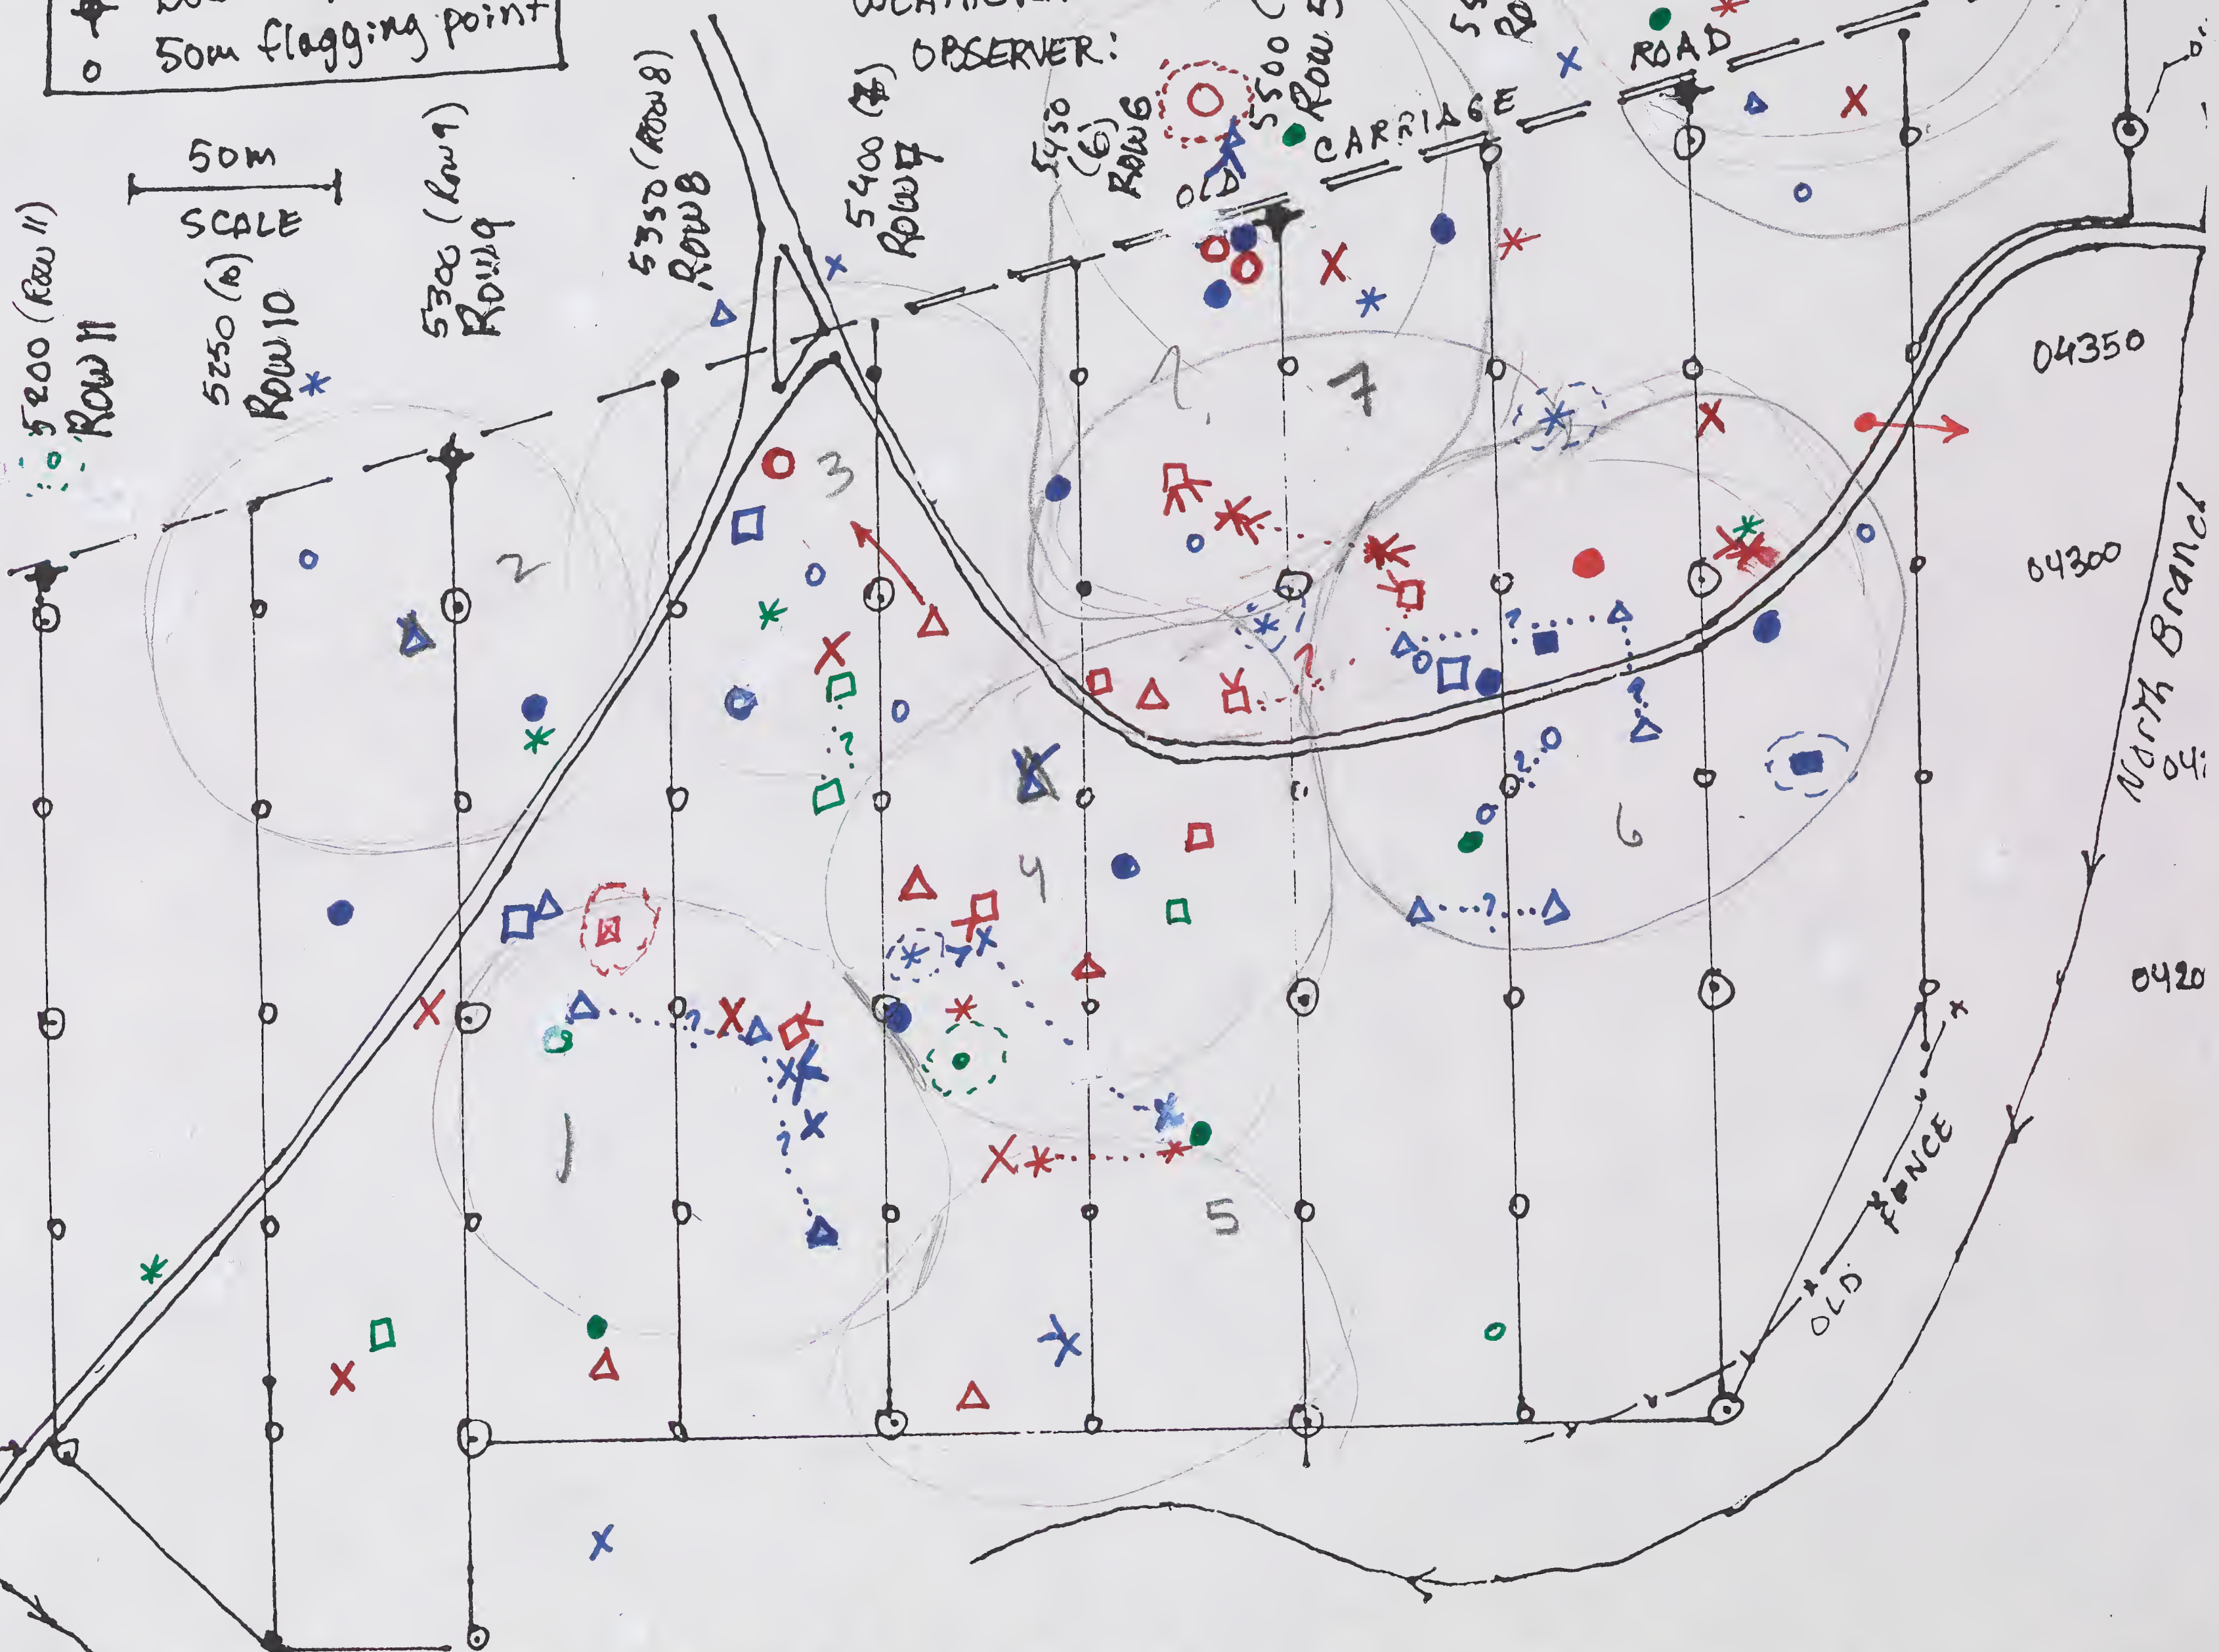 50m flagging point
OBSERVER:
50m
SCALE
5200 (Row 11)
ROW 11
5250 (10)
ROW 10
5300 (Row 9)
ROW 9
5350 (ROW 8)
ROW 8
5400 (7)
ROW 7
5450
(6)
ROW 6
5500
ROW 5
OLD CARRIAGE ROAD
04350
04300
0420
North Branch
OLD FENCE
1
2
3
4
5
6
7
?
?
?
?
?
?
?
?